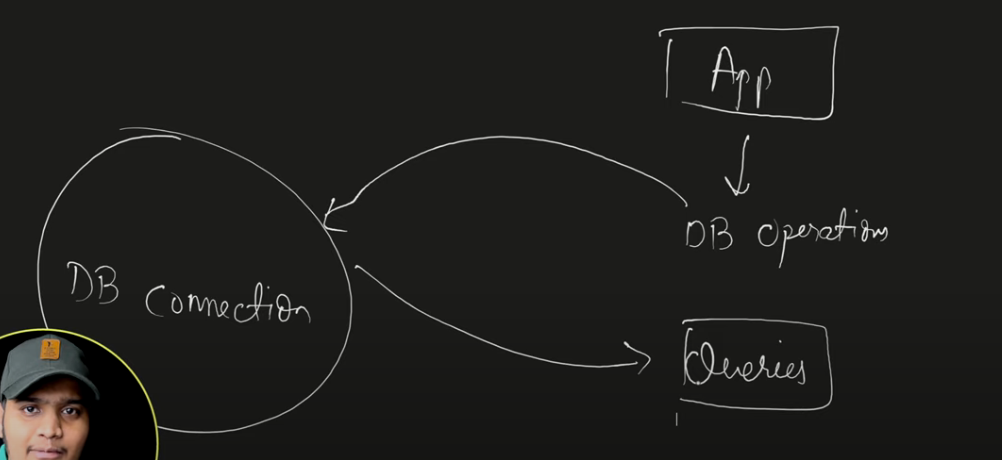 App
DB Operations
DB Connection
Queries